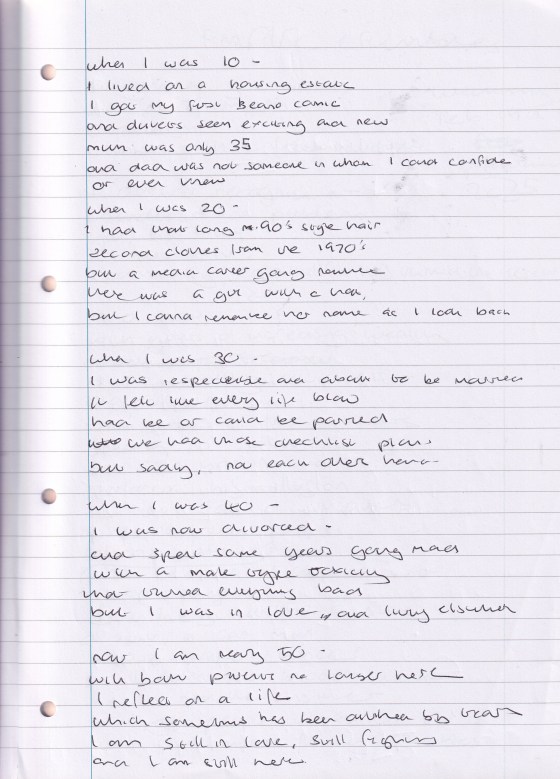 when I was 10 -
I lived on a housing estate
I got my first Beano comic
and duvets seem exciting and new
mum was only 35
and dad was not someone in whom I could confide
or ever knew
when I was 20 -
I had that long 90's style hair
second clothes from the 1970's
but a media career going nowhere
there was a girl with a
but I canna remember her name as I look back
when I was 30 -
I was respectable and about to be married
it felt like every life blow
had be or could be parried
we had those checklist plans
but sadly, not each other
when I was 40 -
I was now divorced -
and spent some years going mad
with a male type toxicity
that turned everything bad
but I was in love, and living
now I am nearly 50 -
with both parents no longer here
I reflect on a life
which sometimes has been by
I am still in love, still fighting
and I am still here